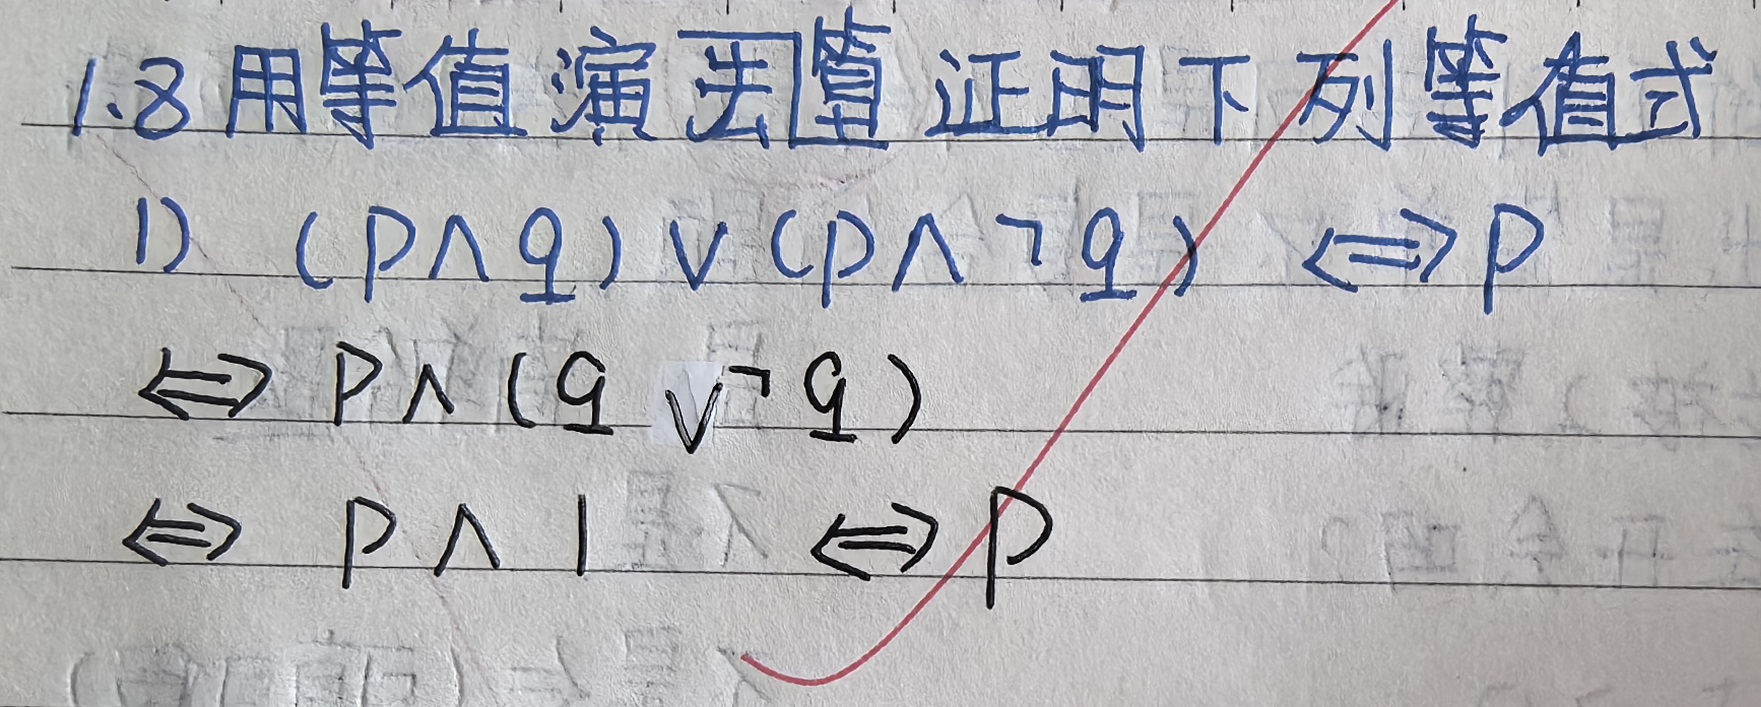 1.8 用等值演算法证明下列等值式
1) (p∧q)∨(p∧¬q) ⇔ p
⇔ p∧(q ∨¬q)
⇔ p∧1 ⇔ p